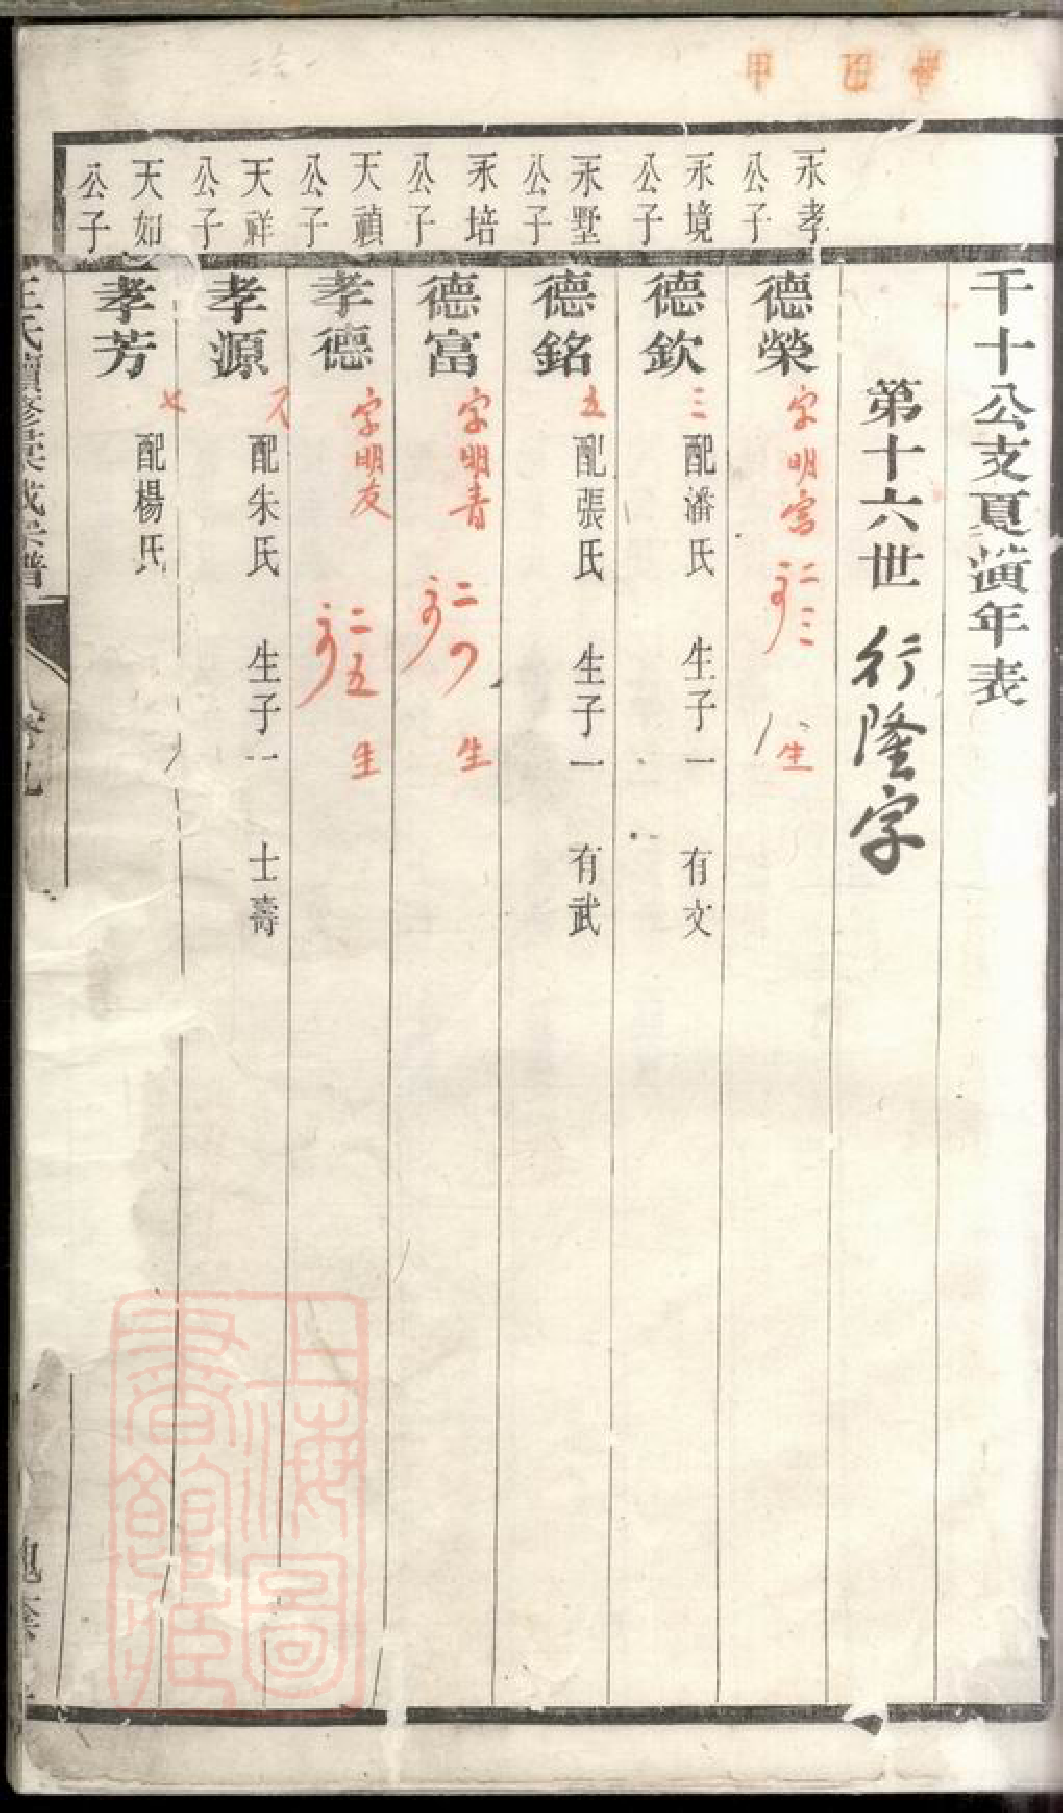 千十公支夏演年表
第十六世 行隆字
永孝公子
德榮 字明宮 二三 生
永境公子
德欽 三 配潘氏 生子一 有文
永墅公子
德銘 五 配張氏 生子一 有武
永培公子
德富 字明青 二 生
天禎公子
孝德 字明友 二五 生
天祥公子
孝源 配朱氏 生子一 士壽
天如公子
孝芳 七 配楊氏
王氏續修 宗譜 卷九
上海圖書館藏